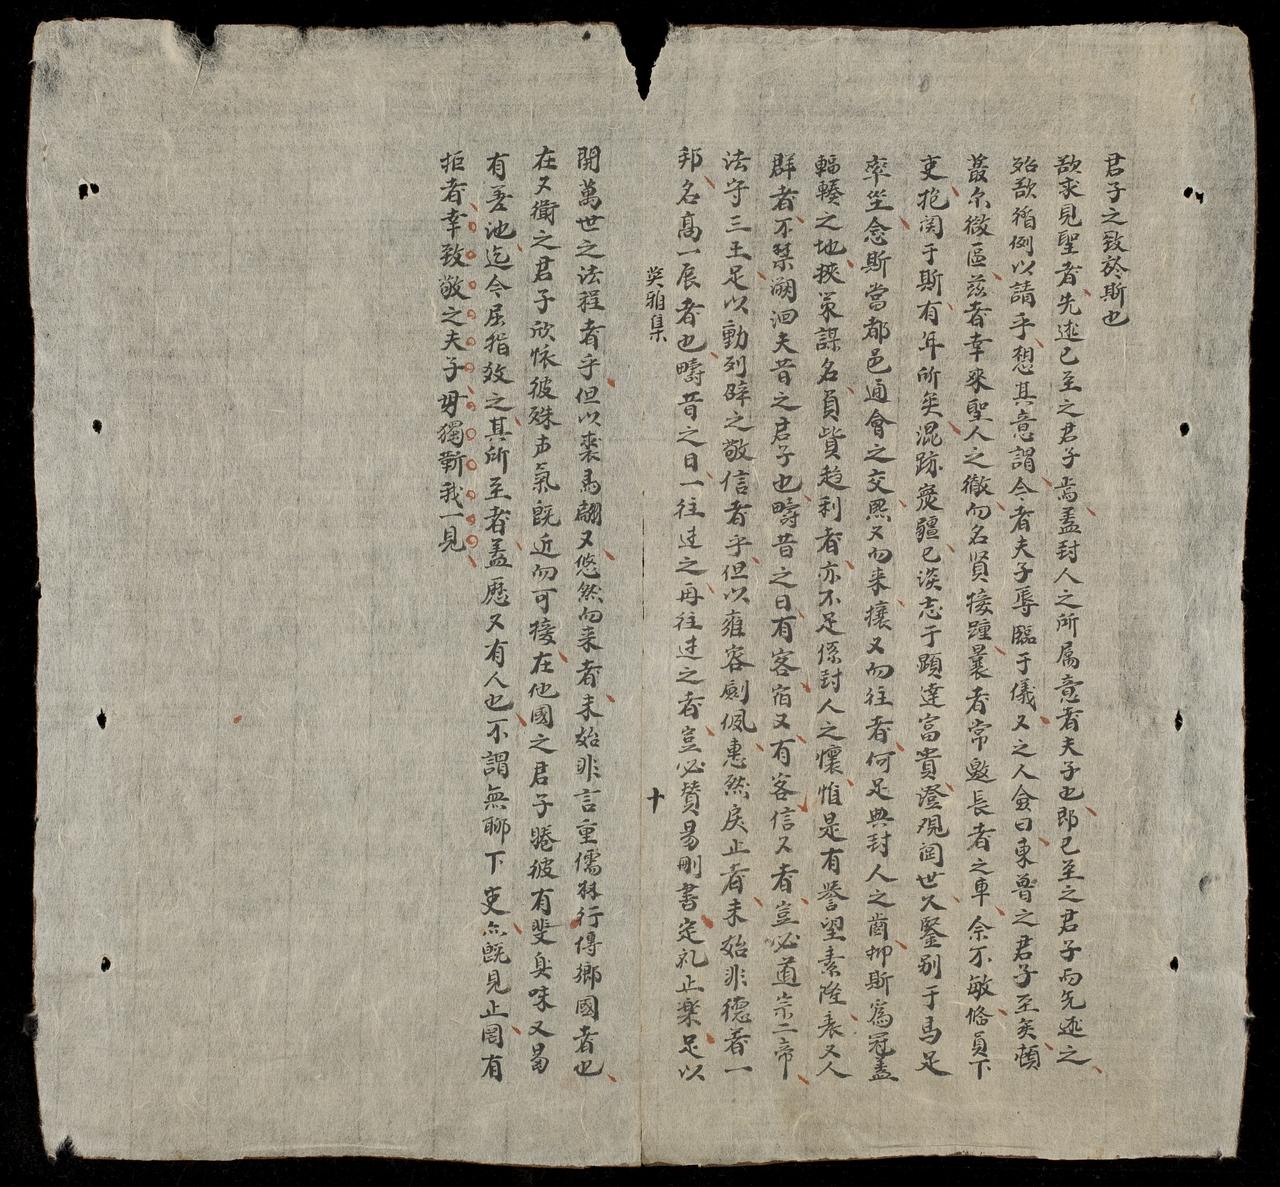 君子之致於斯也
欲求見聖者先述已至之君子焉蓋封人之所属意者夫子也即已至之君子而先述之
殆欲循例以請乎想其意謂今者夫子辱臨于儀又之人僉曰東魯之君子至矣顧
蕞尔微區茲者幸来聖人之轍而名賢接踵曩者常邀長者之車余不敏俻員下
吏抱関于斯有年所矣混跡炎疆已淡志于顕達富貴澄观閱世久鑒别于馬足
率坐念斯當都邑通會之交熙又而来攘又而往者何足與封人之齒抑斯為冠蓋
輻輳之地挾策謀名負貲趋利者亦不足係封人之懷惟是有譽望素隆表又人
群者不禁溯洄夫昔之君子也疇昔之日有客宿又有客信又者豈必道宗二帝
法守三王足以動列辟之敬信者乎但以雍容劍佩惠然戾止者未始非德著一
邦名高一辰者也疇昔之日一往迓之再往迓之者豈必賛易删書定礼止楽足以
英雅集
十
開萬世之法程者乎但以裘馬翩又悠然而来者未始非言重儒林行傳鄉國者也
在又衛之君子欣怀彼殊声氣既近而可接在他國之君子睠彼有斐臭味又曷
有差池迄今屈指数之其所至者蓋歷又有人也不謂無聊下吏亦既見止罔有
拒者幸致敬之夫子毋獨靳我一見